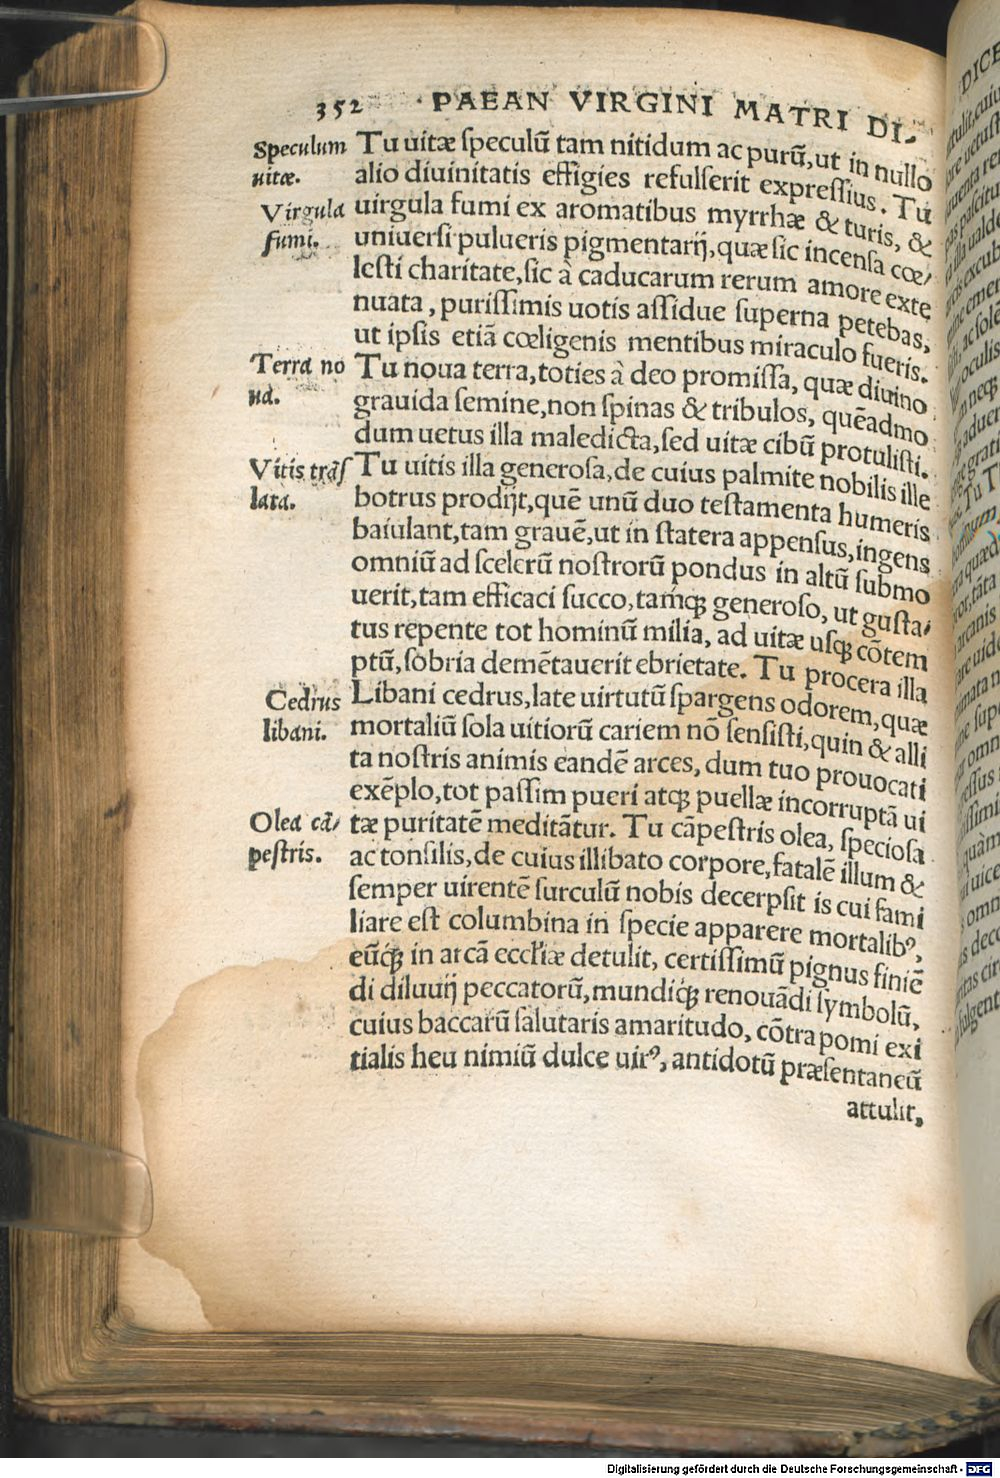 352 PAEAN VIRGINI MATRI DI-
Speculum
uitæ.
Virgula
fumi.
Terra no
ua.
Vitis trāſ
lata.
Cedrus
libani.
Olea cā/
peſtris.
Tu uitæ ſpeculū tam nitidum ac purū, ut in nullo
alio diuinitatis effigies refulſerit expreſſius. Tu
uirgula fumi ex aromatibus myrrhæ & turis, &
uniuerſi pulueris pigmentarij, quæ ſic incenſa cœ/
leſti charitate, ſic à caducarum rerum amore exte
nuata, puriſſimis uotis aſſidue ſuperna petebas,
ut ipſis etiā cœligenis mentibus miraculo fueris.
Tu noua terra, toties à deo promiſſa, quæ diuino
grauida ſemine, non ſpinas & tribulos, quēadmo
dum uetus illa maledicta, ſed uitæ cibū protuliſti.
Tu uitis illa generoſa, de cuius palmite nobilis ille
botrus prodijt, quē unū duo teſtamenta humeris
baiulant, tam grauē, ut in ſtatera appenſus, ingens
omniū ad ſcelerū noſtrorū pondus in altū ſubmo
uerit, tam efficaci ſucco, tamq́ꝫ generoſo, ut guſta/
tus repente tot hominū milia, ad uitæ uſqꝫ cōtem
ptū, ſobria demētauerit ebrietate. Tu procera illa
Libani cedrus, late uirtutū ſpargens odorem, quæ
mortaliū ſola uitiorū cariem nō ſenſiſti, quin & alli
ta noſtris animis eandē arces, dum tuo prouocati
exēplo, tot paſſim pueri atqꝫ puellæ incorruptā ui
tæ puritatē meditātur. Tu cāpeſtris olea, ſpecioſa
ac tonſilis, de cuius illibato corpore, fatalē illum &
ſemper uirentē ſurculū nobis decerpſit is cui fami
liare eſt columbina in ſpecie apparere mortalibꝰ,
eūq́ꝫ in arcā eccľiæ detulit, certiſſimū pignus finiē
di diluuij peccatorū, mundiq́ꝫ renouādi ſymbolū,
cuius baccarū ſalutaris amaritudo, cōtra pomi exi
tialis heu nimiū dulce uirꝰ, antidotū præſentaneū
attulit,
Digitalisierung gefördert durch die Deutsche Forschungsgemeinschaft - DFG